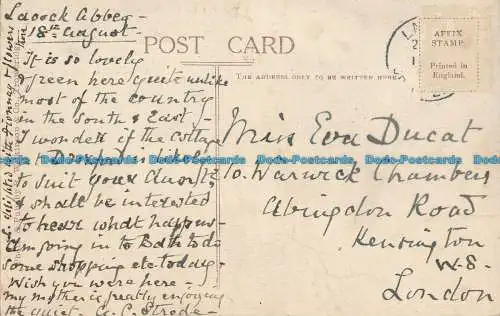 Lacock Abbey -
18th August -
It is so lovely
& green here quite unlike
most of the country
in the South & East. -
I wonder if the Cottage
to suit your Aunt, &
I shall be interested
to hear what happens -
Am going in to Bath to do
some shopping etc. today -
Wish you were here -
my mother is greatly enjoying
the quiet. C. C. Strode -
POST CARD
THE ADDRESS ONLY TO BE WRITTEN HERE
AFFIX
STAMP.
Printed in
England.
Miss Eva Ducat
10. Warwick Chambers
Abingdon Road
Kensington
W-8-
London
Dodo-Postcards Dodo-Postcards Dodo-Postcards Dodo-Postcards Dodo-Postcards